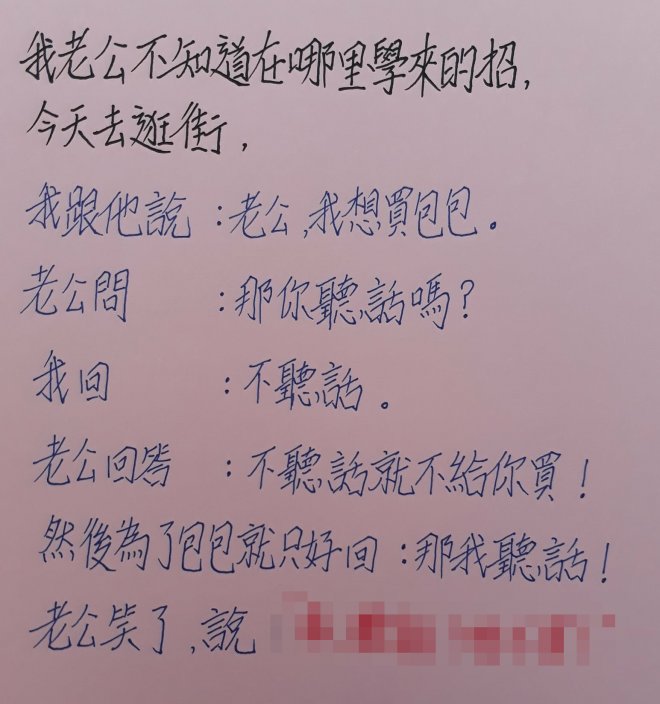 我老公不知道在哪里學來的招,
今天去逛街,
我跟他說:老公,我想買包包。
老公問:那你聽話嗎?
我回:不聽話。
老公回答:不聽話就不給你買!
然後為了包包就只好回:那我聽話!
老公笑了,說